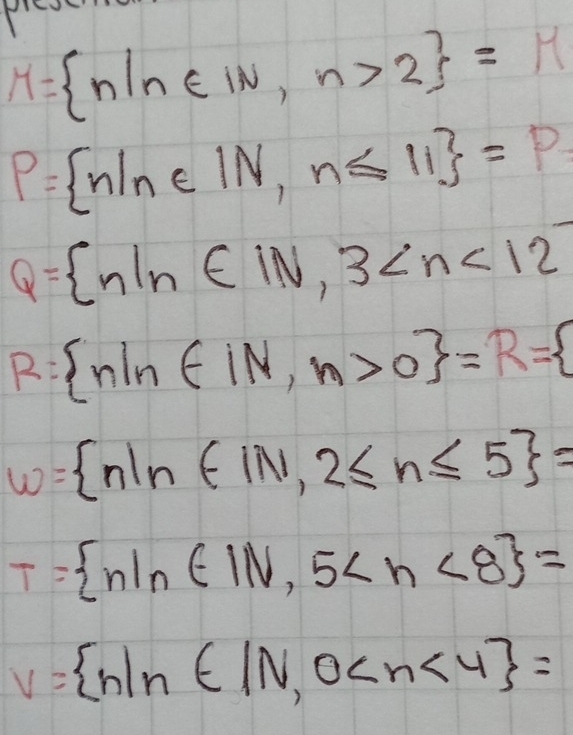 M={n|n ∈ IN, n > 2} = M
P={n|n ∈ IN, n ≤ 11} = P=
Q={n|n ∈ IN, 3 < n < 12
R={n|n ∈ IN, n > 0} = R={
W={n|n ∈ IN, 2 ≤ n ≤ 5} =
T={n|n ∈ IN, 5 < n < 8} =
V={n|n ∈ IN, 0 < n < 4} =